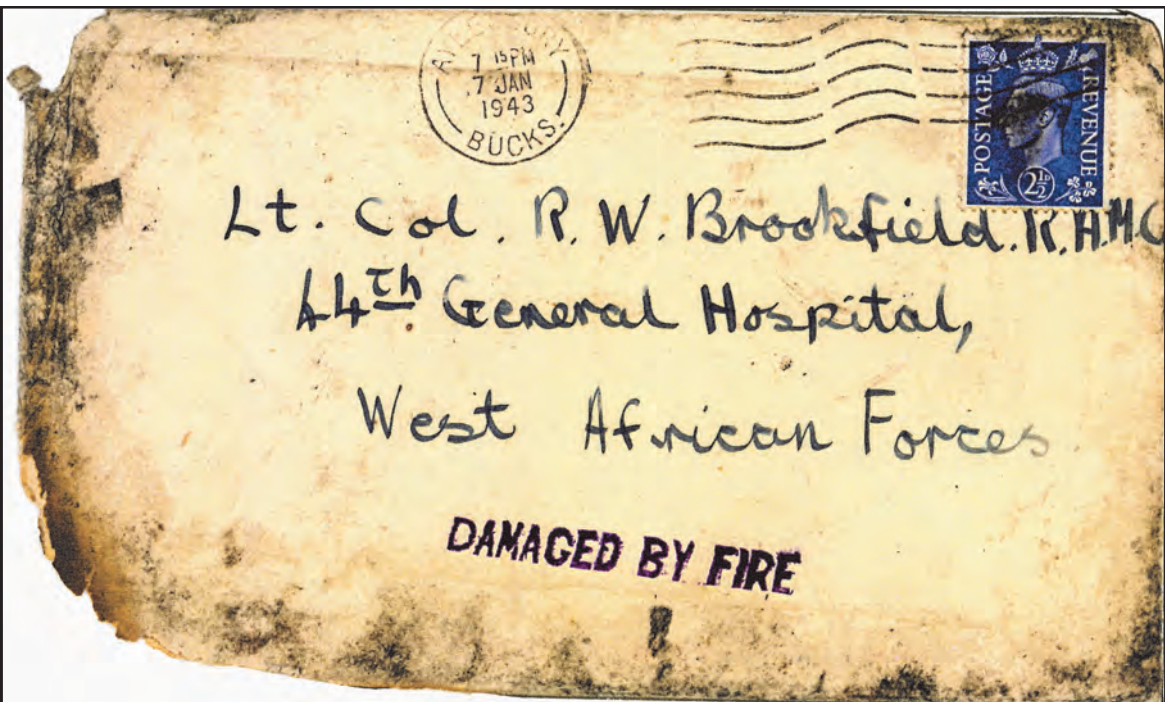 AYLESBURY
7 15PM
7 JAN
1943
BUCKS.
POSTAGE REVENUE
2½D
Lt. Col. R. W. Brookfield. R.A.M.C
44th General Hospital,
West African Forces
DAMAGED BY FIRE